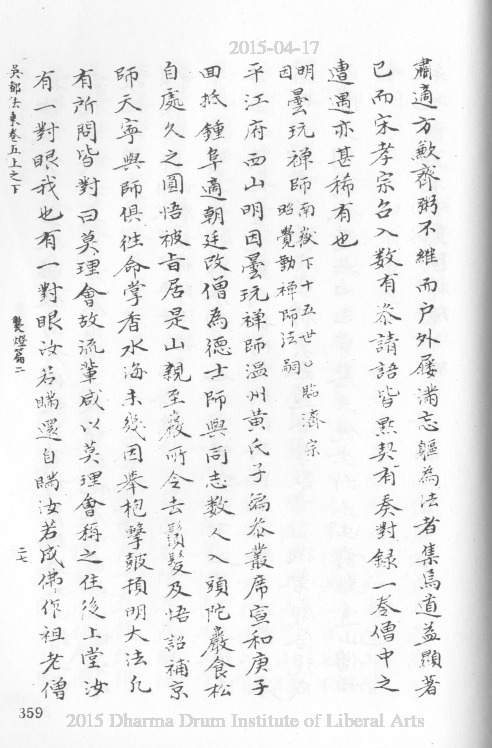 2015-04-17
肅適方歉齊粥不維而户外屨滿忘軀為法者集焉道益顯著
已而宋孝宗召入数有咨請語皆默契有奏對録一卷僧中之
遭遇亦甚稀有也
明因曇玩禅師 南嶽下十五世○臨濟宗 昭覺勤禅師法嗣
平江府西山明因曇玩禅師温州黄氏子徧叅叢席宣和庚子
回抵鍾阜適朝廷改僧為德士師與同志数人入頭陀巖食松
自處久之圓悟被旨居是山親至巖所令去鬚髮及悟詔補京
師天寧與師俱往命掌香水海未幾因舉枹擊皷頓明大法凡
有所問皆對曰莫理會故流輩咸以莫理會稱之住後上堂汝
有一對眼我也有一對眼汝若瞞還自瞞汝若成佛作祖老僧
吴都法乘卷五上之下
二七
359
2015 Dharma Drum Institute of Liberal Arts